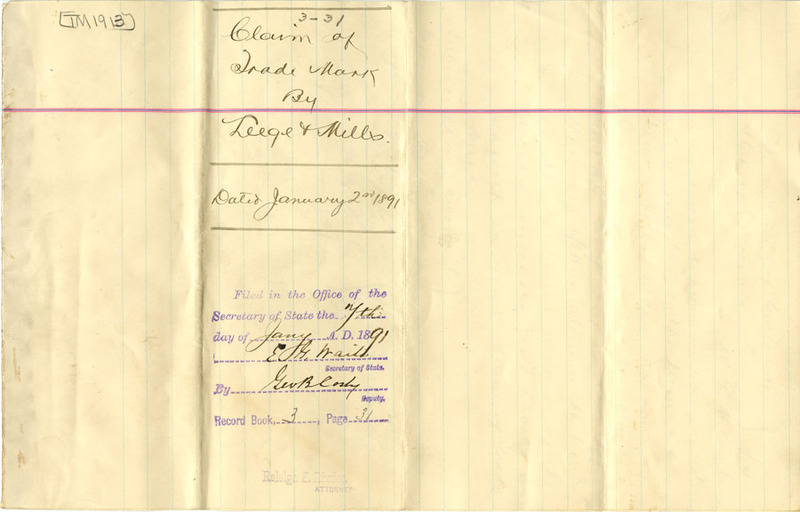 [TM1913]
3-31
Claim of
Trade Mark
By
Leege & Mills.
Dated January 2nd 1891
Filed in the Office of the
Secretary of State the 7th
day of Jany A. D. 1891
E. G. Waite
Secretary of State.
By Geo B Cosby
Deputy.
Record Book, 3, Page 31
Raleigh E.
ATTORNEY